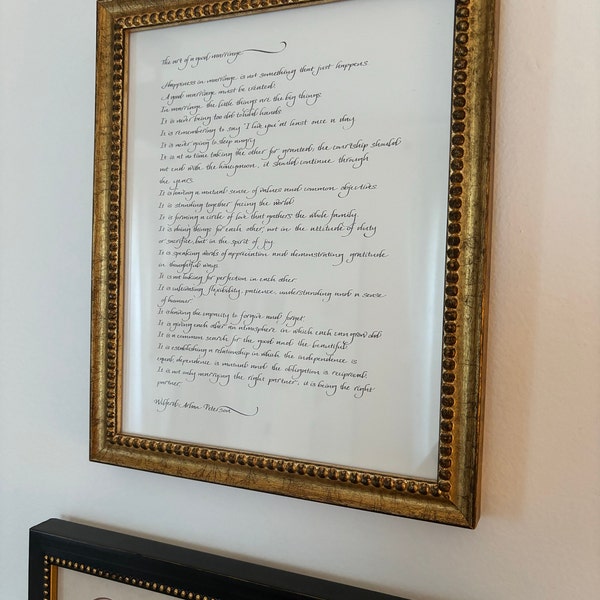 The art of a good marriage
Happiness in marriage is not something that just happens
A good marriage must be created.
In marriage the little things are the big things
It is never being too old to hold hands.
It is remembering to say "I love you" at least once a day
It is never going to sleep angry.
It is at no time taking the other for granted; the courtship should
not end with the honeymoon, it should continue through
the years.
It is having a mutual sense of values and common objectives
It is standing together facing the world.
It is forming a circle of love that gathers the whole family
It is doing things for each other, not in the attitude of duty
or sacrifice, but in the spirit of joy.
It is speaking words of appreciation and demonstrating gratitude
in thoughtful ways.
It is not looking for perfection in each other.
It is cultivating flexibility, patience, understanding and a sense
of humour.
It is having the capacity to forgive and forget.
It is giving each other an atmosphere in which each can grow old.
It is a common search for the good and the beautiful.
It is establishing a relationship in which the independence is
equal, dependence is mutual and the obligation is reciprocal.
It is not only marrying the right partner, it is being the right
partner.
Wilferd Arlan Peterson